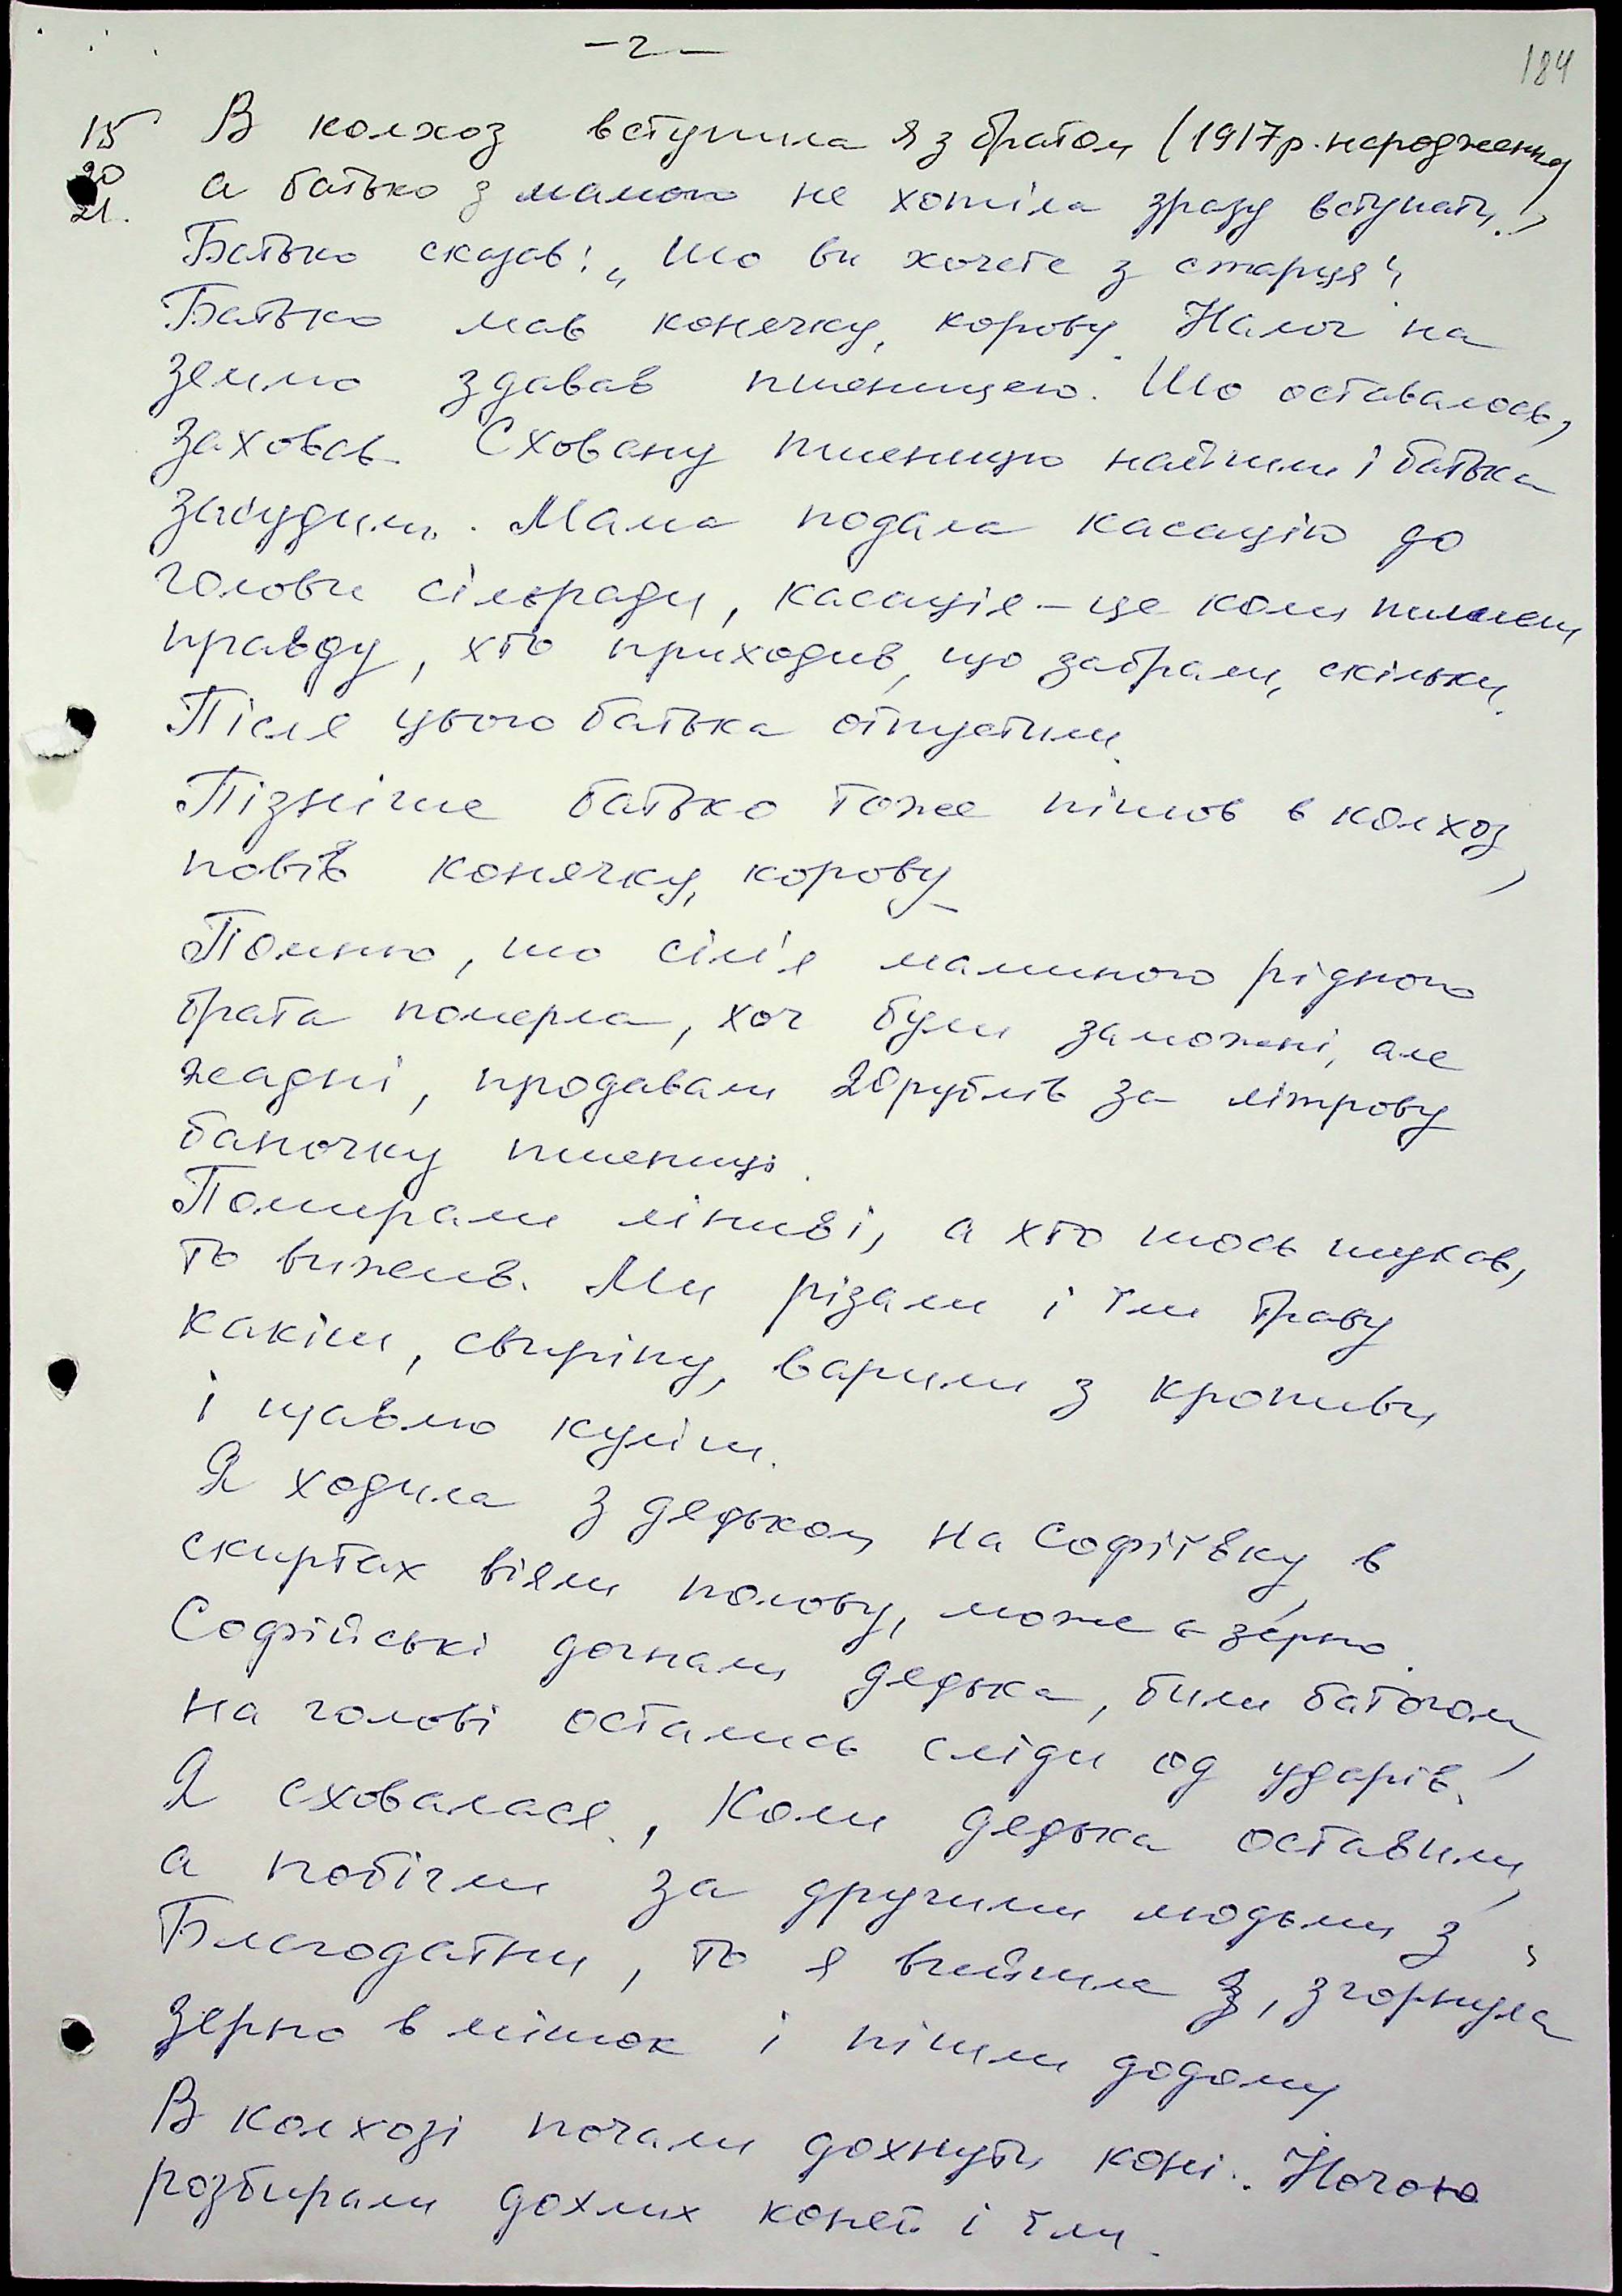 - 2 -
184
15 В колхоз вступила я з братом (1917р. народження)
20 а батько з мамою не хотіла зразу вступать,
21. Батько сказав: „Шо ви хочете з старця“,
Батько мав конячку, корову. Налог на
землю здавав пшеницею. Шо оставалось,
заховав. Сховану пшеницю найшли і батька
засудили. Мама подала касацію до
голови сільради, касація – це коли пишеш
правду, хто приходив, що забрали, скільки.
Після цього батька отпустили.
Пізніше батько тоже пішов в колхоз,
повів конячку, корову
Помню, шо сім'я маминого рідного
брата померла, хоч були заможні, але
жадні, продавали 20 рублів за літрову
баночку пшениці.
Помирали ліниві, а хто шось шукав,
то вижив. Ми різали і їли траву
какіш, свиріпу, варили з кропиви
і щавлю куліш.
Я ходила з дядьком на Софіївку, в
скиртах віяли полову, може є зерно.
Софійські догнали дядька, били батогом,
на голові остались сліди од ударів.
Я сховалася, коли дядька оставили,
а побігли за другими людьми з
Благодатни, то я вийшла з, згорнула
зерно в мішок і пішли додому
В колхозі почали дохнуть коні. Ночою
розбирали дохлих коней і їли.